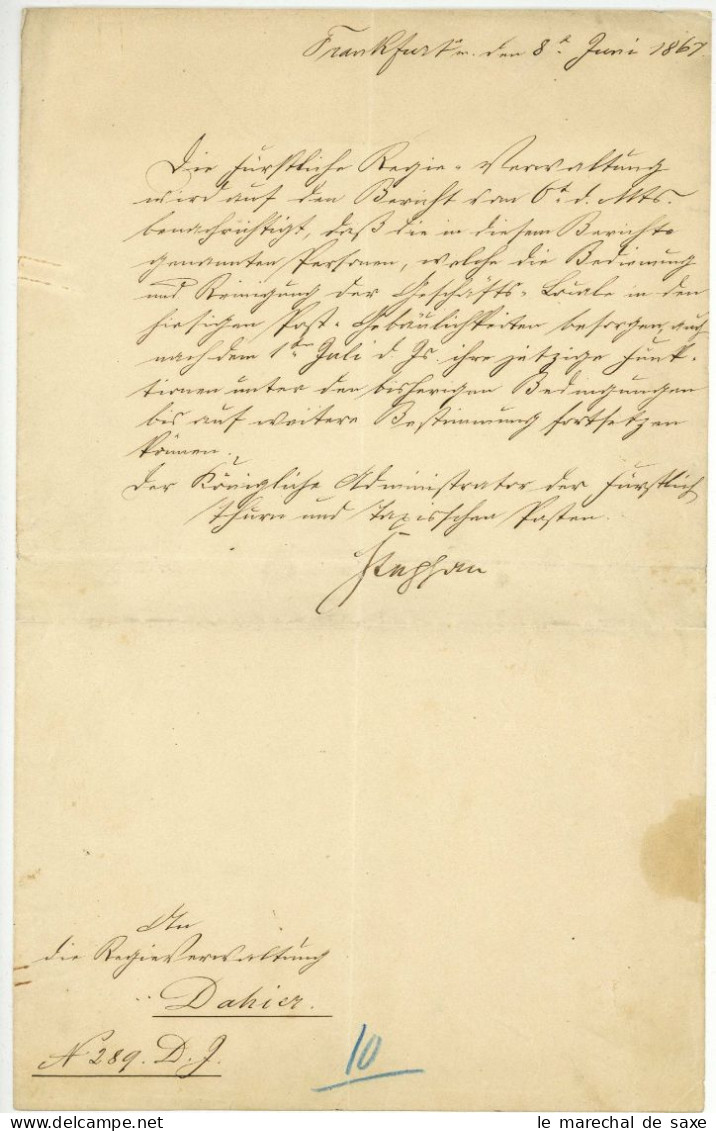 Frankfurt a/m. den 8t Juni 1867.
Die Fürstliche Regie-Verwaltung
wird auf den Bericht vom 6t d. Mts.
benachrichtigt, daß die in diesem Berichte
genannten Personen, welche die Bedienung
und Reinigung der Geschäfts-Locale in den
hiesigen Post-Gebäulichkeiten besorgen, auch
nach dem 1ten Juli d. Js. ihre jetzige Funk-
tionen unter den bisherigen Bedingungen
bis auf weitere Bestimmung fortsetzen
können.
Der Königliche Administrator der Fürstlich
Thurn und Taxisschen Posten.
Stephan
An
die Regieverwaltung
Dahier.
N 289. D. J.
10
le marechal de saxe